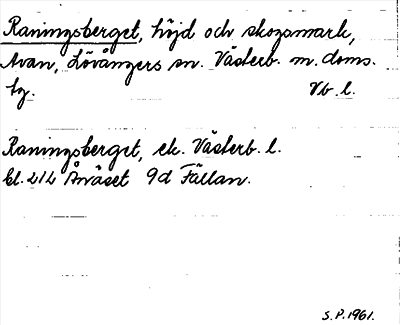 Raningsberget, höjd och skogsmark,
Avan, Lövångers sn. Västerb. m. doms.
tg. Vb. l.
Raningsberget, ek. Västerb. l.
bl. 212 Ånäset 9d Fällan.
S.P. 1961.